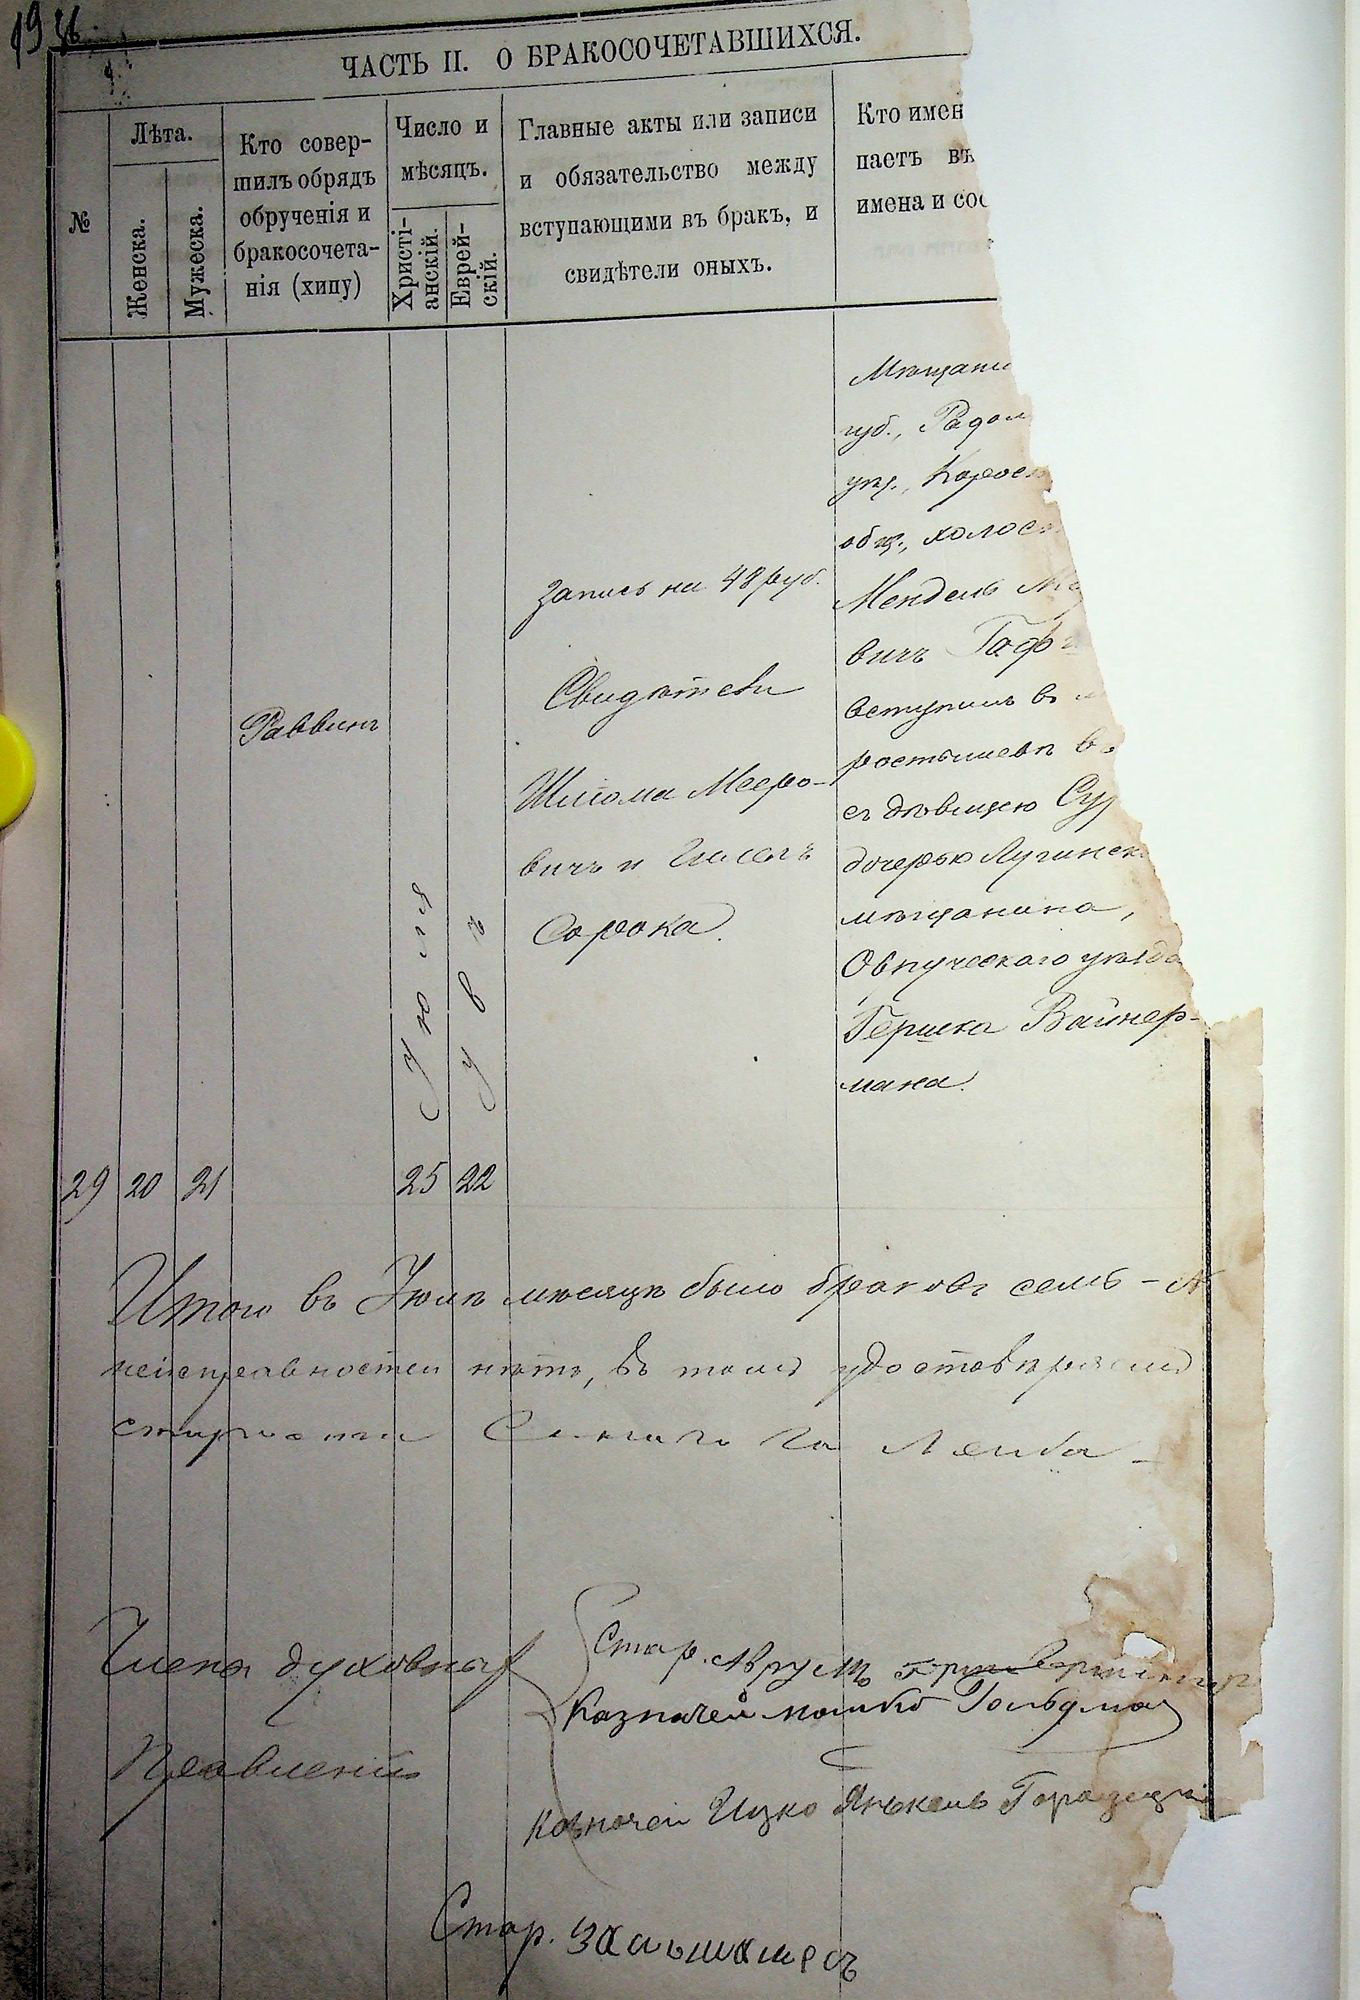 19
ЧАСТЬ II. О БРАКОСОЧЕТАВШИХСЯ.
№
Лѣта.
Женска.
Мужеска.
Кто совер-
шилъ обрядъ
обрученія и
бракосочета-
нія (хипу)
Число и
мѣсяцъ.
Христі-
анскій.
Еврей-
скій.
Главные акты или записи
и обязательство между
вступающими въ бракъ, и
свидѣтели оныхъ.
Кто имен
паетъ въ
имена и сос
29
20
21
Раввинъ
Іюля
25
22
Запись на 48 руб.
Свидѣтели
Шліома Мееро-
вичъ и
Сорока.
Мѣщани
губ., Радом
уѣз., Корост
общ., холост
Мендель М
вичъ Гоф
вступилъ въ
ростышевѣ в
съ дѣвицею Су
дочерью Лугинск
мѣщанина,
Овручскаго уѣзда
Гершка Вайнер-
мана.
Итого въ Іюлѣ мѣсяцѣ было браковъ семь - А
неисправностей нѣтъ, въ томъ удостовѣряемъ
Члены духовнаго
Правленія
Стар. Аврумъ
Казначей Мошко Гольдман
Казначей Ицко Янкель Городецкій
Стар.